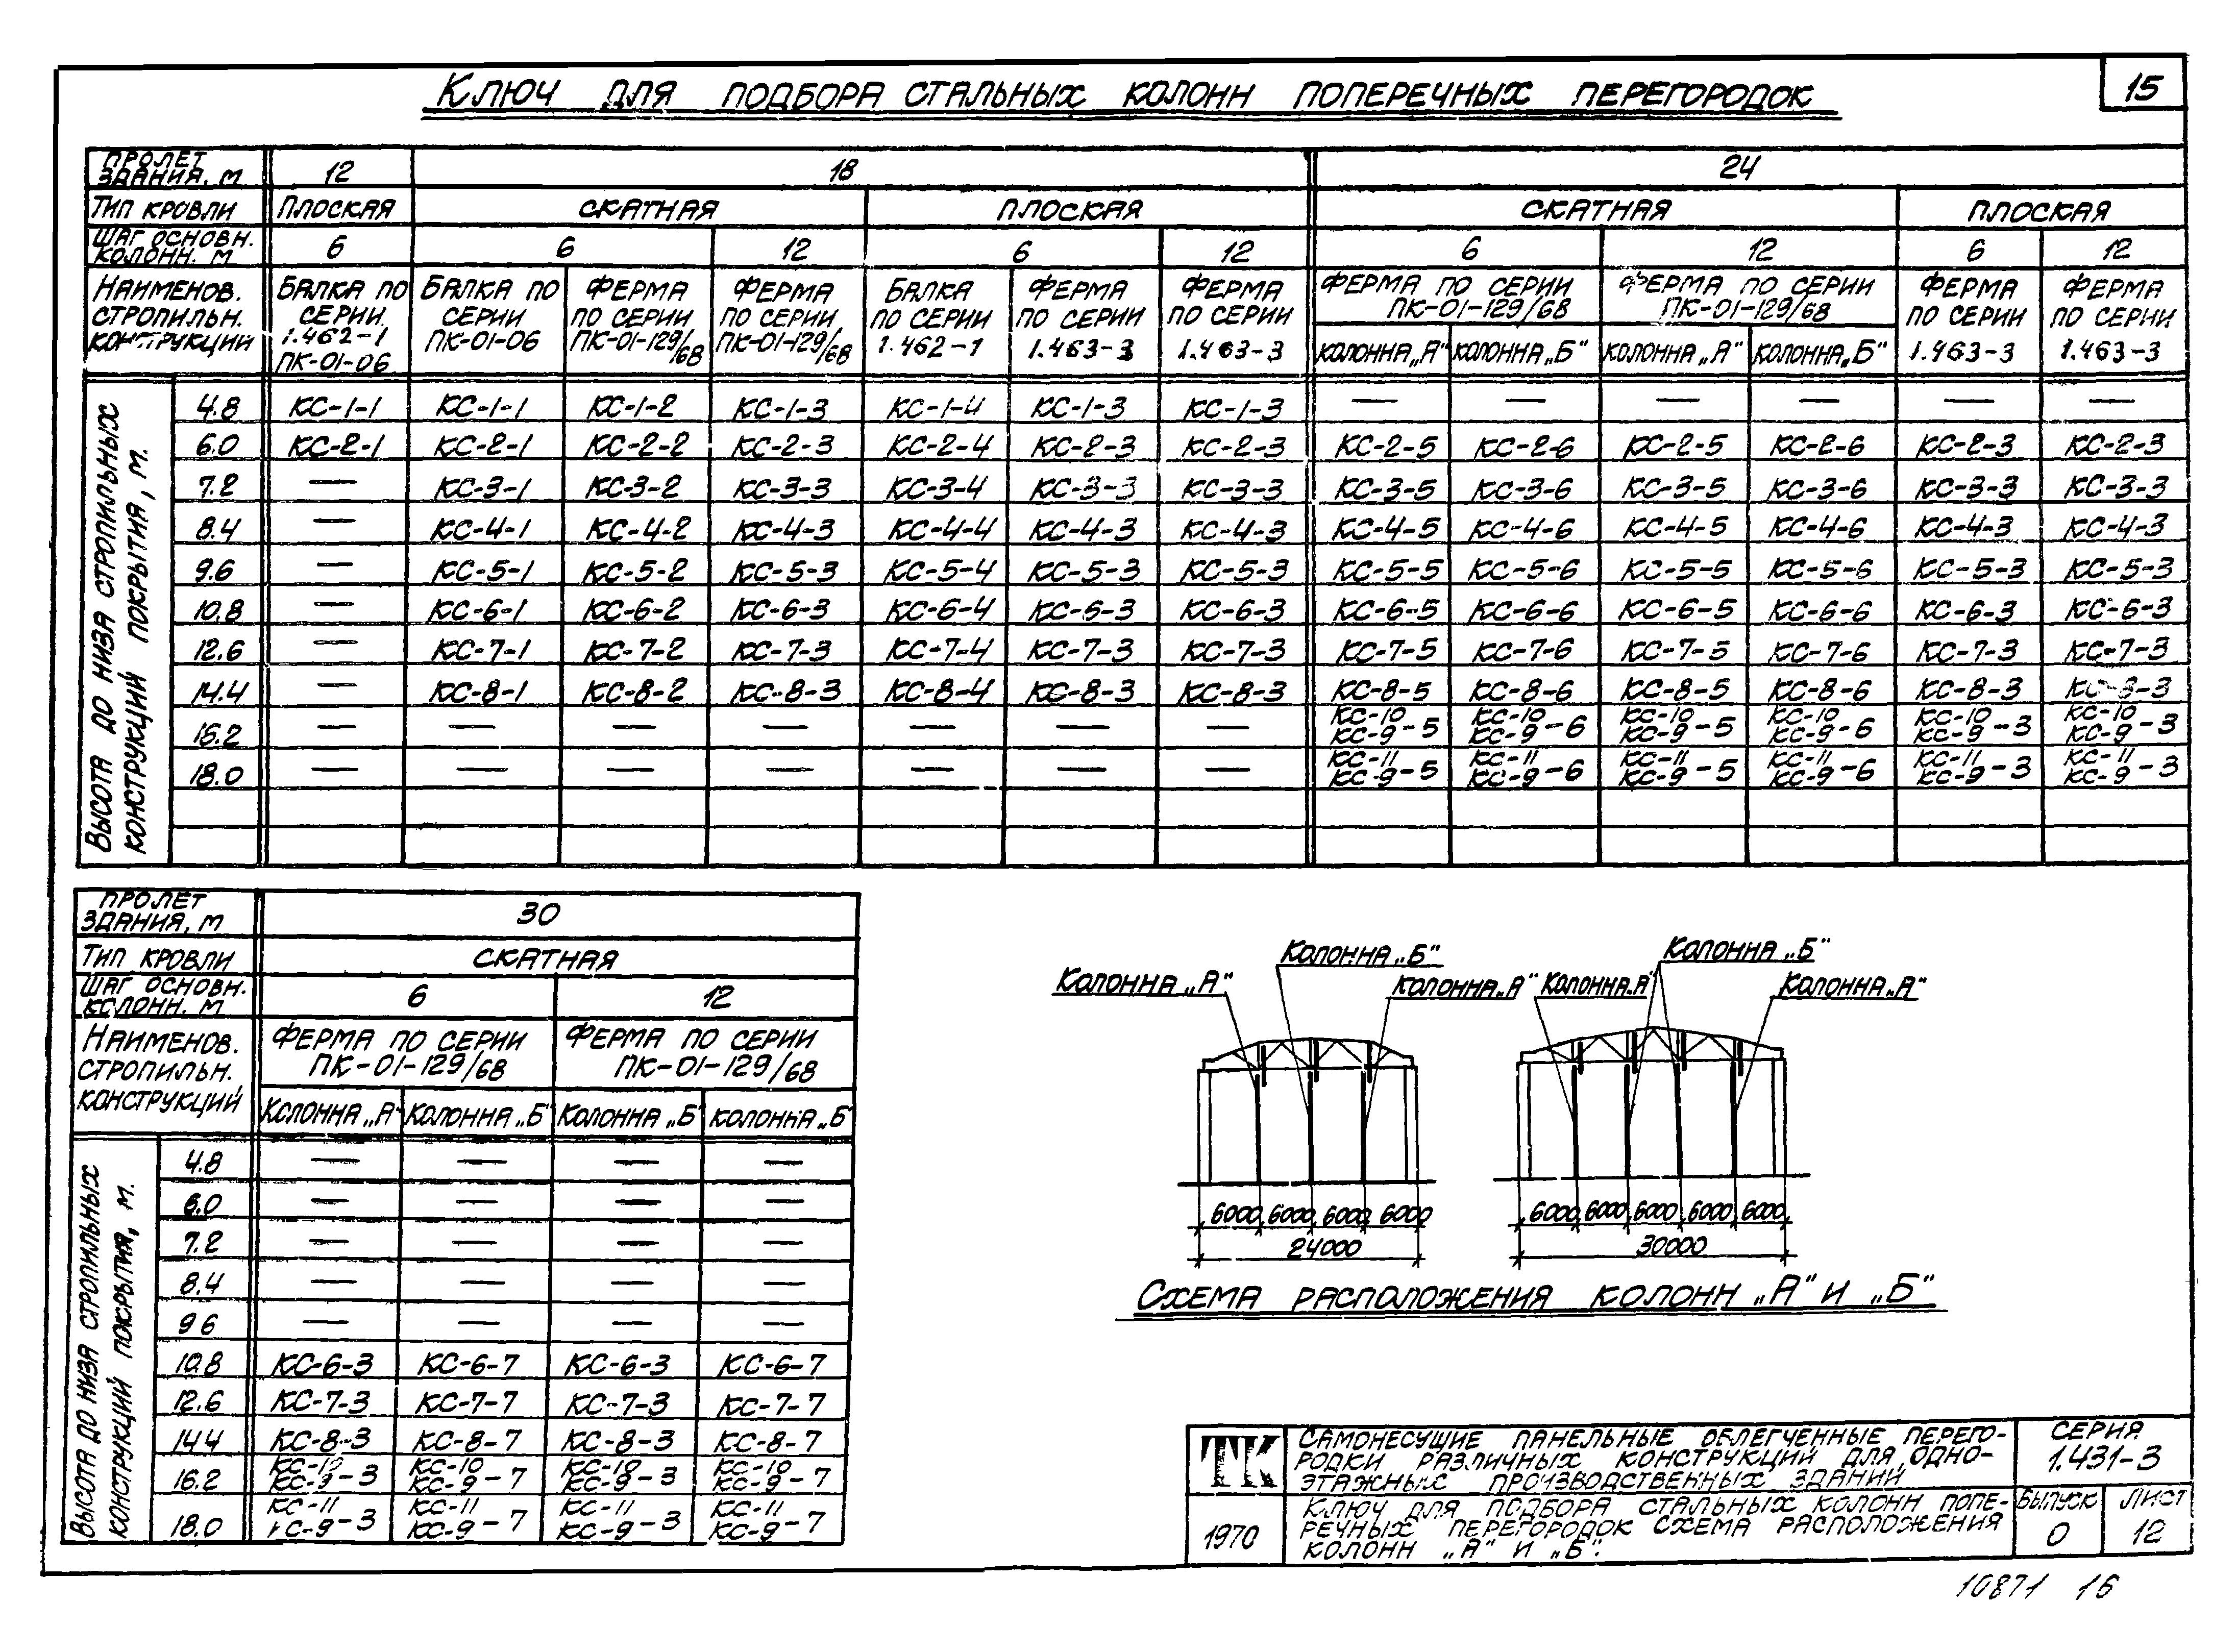 15
Ключ для подбора стальных колонн поперечных перегородок
Пролет здания, м 12 18 24
Тип кровли плоская скатная плоская скатная плоская
Шаг основн. колонн. м 6 6 12 6 12 6 12 6 12
Наименов. стропильн. конструкций
Балка по серии 1.462-1 ПК-01-06
Балка по серии ПК-01-06
Ферма по серии ПК-01-129/68
Ферма по серии ПК-01-129/68
Балка по серии 1.462-1
Ферма по серии 1.463-3
Ферма по серии 1.463-3
Ферма по серии ПК-01-129/68
Ферма по серии ПК-01-129/68
Ферма по серии 1.463-3
Ферма по серии 1.463-3
колонна „А" колонна „Б" колонна „А" колонна „Б"
Высота до низа стропильных конструкций покрытия, м.
4.8 КС-1-1 КС-1-1 КС-1-2 КС-1-3 КС-1-4 КС-1-3 КС-1-3 — — — — — —
6.0 КС-2-1 КС-2-1 КС-2-2 КС-2-3 КС-2-4 КС-2-3 КС-2-3 КС-2-5 КС-2-6 КС-2-5 КС-2-6 КС-2-3 КС-2-3
7.2 — КС-3-1 КС-3-2 КС-3-3 КС-3-4 КС-3-3 КС-3-3 КС-3-5 КС-3-6 КС-3-5 КС-3-6 КС-3-3 КС-3-3
8.4 — КС-4-1 КС-4-2 КС-4-3 КС-4-4 КС-4-3 КС-4-3 КС-4-5 КС-4-6 КС-4-5 КС-4-6 КС-4-3 КС-4-3
9.6 — КС-5-1 КС-5-2 КС-5-3 КС-5-4 КС-5-3 КС-5-3 КС-5-5 КС-5-6 КС-5-5 КС-5-6 КС-5-3 КС-5-3
10.8 — КС-6-1 КС-6-2 КС-6-3 КС-6-4 КС-6-3 КС-6-3 КС-6-5 КС-6-6 КС-6-5 КС-6-6 КС-6-3 КС-6-3
12.6 — КС-7-1 КС-7-2 КС-7-3 КС-7-4 КС-7-3 КС-7-3 КС-7-5 КС-7-6 КС-7-5 КС-7-6 КС-7-3 КС-7-3
14.4 — КС-8-1 КС-8-2 КС-8-3 КС-8-4 КС-8-3 КС-8-3 КС-8-5 КС-8-6 КС-8-5 КС-8-6 КС-8-3 КС-8-3
КС-10 КС-10 КС-10 КС-10 КС-10 КС-10
16.2 — — — — — — — КС-9-5 КС-9-6 КС-9-5 КС-9-6 КС-9-3 КС-9-3
КС-11 КС-11 КС-11 КС-11 КС-11 КС-11
18.0 — — — — — — — КС-9-5 КС-9-6 КС-9-5 КС-9-6 КС-9-3 КС-9-3
Пролет здания, м 30
Тип кровли скатная
Шаг основн. колонн. м 6 12
Наименов. стропильн. конструкций
Ферма по серии ПК-01-129/68
Ферма по серии ПК-01-129/68
Колонна „А" колонна „Б" колонна „Б" колонна „Б"
Высота до низа стропильных конструкций покрытия, м.
4.8 — — — —
6.0 — — — —
7.2 — — — —
8.4 — — — —
9.6 — — — —
10.8 КС-6-3 КС-6-7 КС-6-3 КС-6-7
12.6 КС-7-3 КС-7-7 КС-7-3 КС-7-7
14.4 КС-8-3 КС-8-7 КС-8-3 КС-8-7
КС-10 КС-10 КС-10 КС-10
16.2 КС-9-3 КС-9-7 КС-9-3 КС-9-7
КС-11 КС-11 КС-11 КС-11
18.0 КС-9-3 КС-9-7 КС-9-3 КС-9-7
Колонна „Б" Колонна „Б"
Колонна „А" Колонна „А" Колонна „А" Колонна „А"
6000 6000 6000 6000 6000 6000 6000 6000 6000
24000 30000
Схема расположения колонн „А" и „Б"
ТК
1970
Самонесущие панельные облегченные перего-
родки различных конструкций для одно-
этажных производственных зданий
Серия
1.431-3
Ключ для подбора стальных колонн попе-
речных перегородок схема расположения
колонн „А" и „Б".
Выпуск Лист
0 12
10871 16